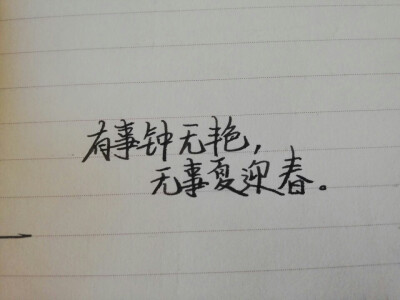 有事钟无艳，
无事夏迎春。